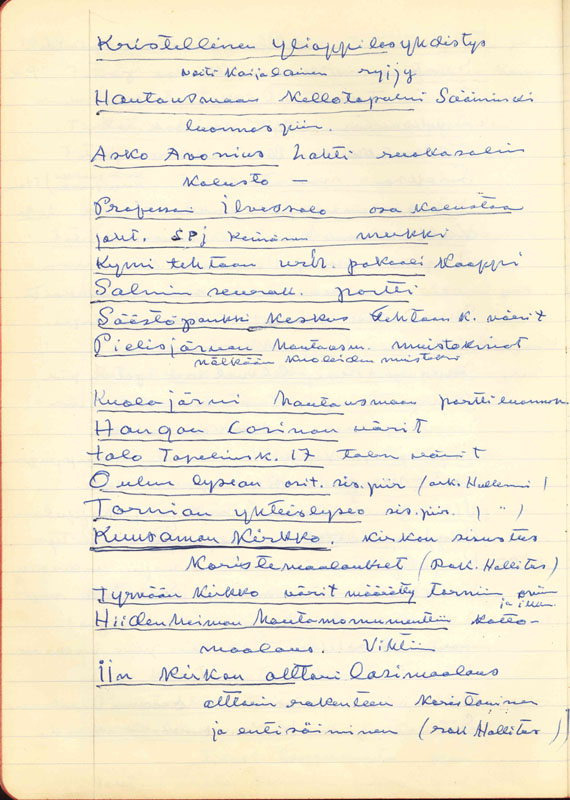 Kristellinen ylioppilasyhdistys
neiti Kaijalainen ryijy
Hautausmaan Kellotapuli Sääminki
luonnospiir.
Asko Avonius Lahti ruokasalin
Kalusto —
Professori Ilvessalo osa Kalustoa
joht. SPJ Keinänen mukki
Kymi tehtaan urh. pokaali Kaappi
Salmin seurak. portti
Säästöpankki Keskus Tehtaan K. värit
Pielisjärven hautausm. muistokivet
nälkään Kuolleiden muistoksi
Kuolajärvi Hautausmaan porttiluonnos
Hangon Casinon värit
talo Topeliusk. 17 talon värit
Oulun lysean osit. sis. piir (ark. )
Tornion yhteislyseo sis. piir. ( " )
Kuusamon Kirkko. Kirkon sisustus
Koristemaalaukset (Rak. Hallitus)
Tyrvään Kirkko värit määrätty tornin
ja
Hiidenheimon Hautamonumenttiin Katto-
maalaus. Vihtiin
Iin Kirkon alttari lasimaalaus
alttarin rakenteen Koristaminen
ja entisöiminen (rak Hallitus)